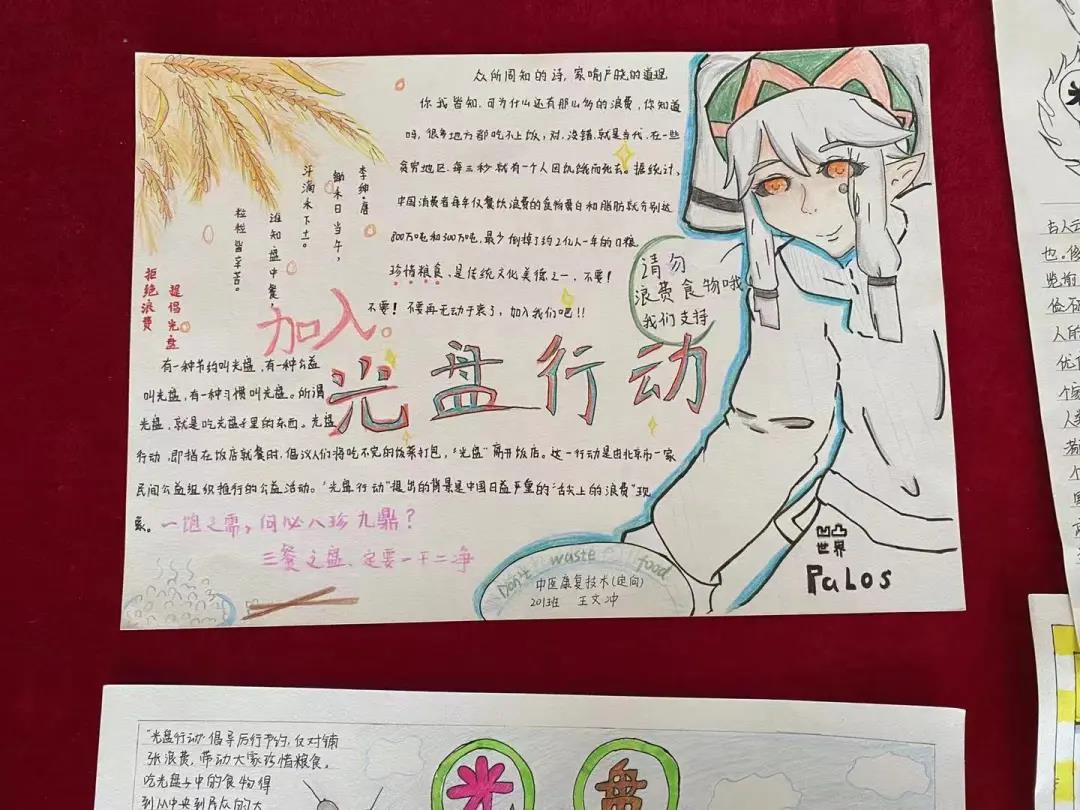 众所周知的诗,家喻户晓的道理
你我皆知,可为什么还有那么多的浪费,你知道
吗,很多地方都吃不上饭,对,没错,就是当代,在一些
贫穷地区,每三秒就有一个人因饥饿而死去。据统计,
中国消费者每年仅餐饮浪费的食物蛋白和脂肪就分别达
800万吨和300万吨,最少倒掉了约2亿人一年的口粮
珍惜粮食,是传统文化美德之一,不要!
不要!不要再无动于衷了,加入我们吧!!
李绅·唐
锄禾日当午,
汗滴禾下土。
谁知盘中餐,
粒粒皆辛苦。
提倡光盘
拒绝浪费
加入。
光盘行动
请勿
浪费食物哦
我们支持
有一种节约叫光盘,有一种公益
叫光盘,有一种习惯叫光盘。所谓
光盘,就是吃光盘子里的东西。光盘
行动,即指在饭店就餐时,倡议人们将吃不完的饭菜打包,“光盘”离开饭店。这一行动是由北京市一家
民间公益组织推行的公益活动。“光盘行动”提出的背景是中国日益严重的“舌尖上的浪费”现
象。
一饱之需,何必八珍九鼎?
三餐之盘,定要一干二净
Don't waste food
中医康复技术(定向)
2013班 王文冲
凹凸
世界
PaLos
“光盘行动”倡导厉行节约,反对铺
张浪费,带动大家珍惜粮食,
吃光盘子中的食物得
到从中央到民众的大
光
盘
古人云
也。修
人的
优
个
人类